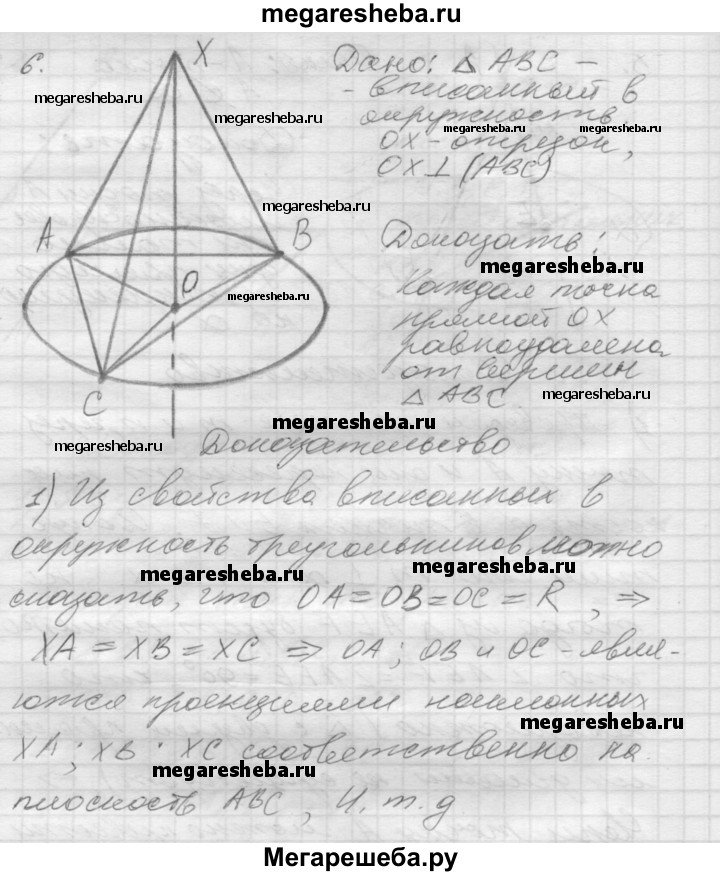 megaresheba.ru
6.
X
Дано: △ ABC –
- вписанный в
окружность,
OX - отрезок,
OX ⊥ (ABC)
megaresheba.ru
megaresheba.ru
megaresheba.ru
megaresheba.ru
megaresheba.ru
A
B
O
C
Доказать:
megaresheba.ru
megaresheba.ru
Каждая точка
прямой OX
равноудалена
от вершин
△ ABC
megaresheba.ru
megaresheba.ru
megaresheba.ru
Доказательство
1) Из свойства вписанных в
окружность треугольников можно
megaresheba.ru
megaresheba.ru
сказать, что OA = OB = OC = R, ⇒
XA = XB = XC ⇒ OA; OB и OC - явля-
ются проекциями наклонных
megaresheba.ru
XA; XB; XC соответственно на
megaresheba.ru
плоскость ABC, Ч.т.д
Мегарешеба.ру